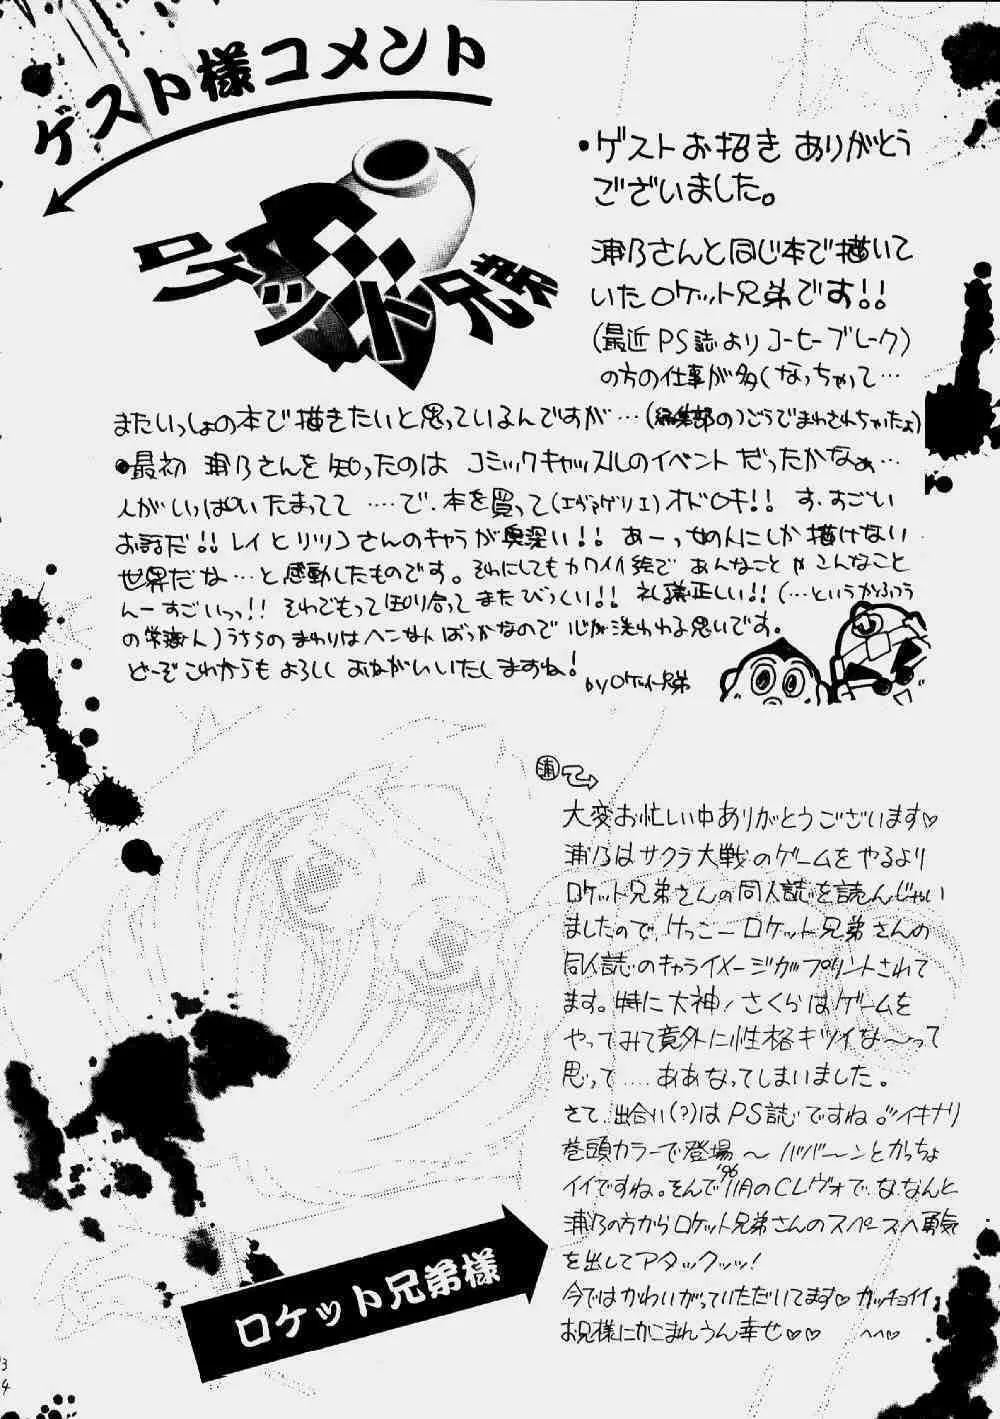 ゲスト様コメント
ロケット兄弟
•ゲストお招き ありがとう
ございました。
浦乃さんと同じ本で描いて
いたロケット兄弟です!!
(最近PS誌よりコーヒーブレーク)
の方の仕事が多くなっちゃって…
またいっしょの本で描きたいと思っているんですが…(編集部のつごうでまわされちゃいたよ)
•最初 浦乃さんを知ったのは コミックキャッスルのイベントだったかなぁ…
人がいっぱいたまってて ‥‥で、本を買って(エヴァゲリエ)オドロキ!! す、すごい
お話だ!! レイとリツコさんのキャラが奥深い!! あーっ女の人にしか描けない
世界だな…と感動したものです。それにしてもカワイイ絵で あんなことやこんなこと
んーすごいっっ!! それでもって 知り合って またびっくり!! 礼儀正しい!!(…というかふつう
の常識人)うちらの まわりは ヘンな人ばっかなので 心が洗われる思いです。
どーぞこれからも よろしく おねがいいたしますね!
byロケット兄弟
浦
大変お忙しい中ありがとうございます♡
浦乃はサクラ大戦のゲームをやるより
ロケット兄弟さんの同人誌を読んじゃい
ましたので、けっこーロケット兄弟さんの
同人誌のキャライメージがプリントされて
ます。特に大神!さくらはゲームを
やってみて意外に性格キツイな〜って
思って‥‥ああなってしまいました。
さて、出合い(?)はPS誌ですね。イキナリ
巻頭カラーで登場〜 ババーンとかっちょ
イイですね。そんで'96 11月のCLヴォで、な、なんと
浦乃の方からロケット兄弟さんのスペースへ勇気
を出してアタックッッ!
今ではかわいがっていただいてます♡ カッチョイイ
お兄様にかこまれうん幸せ♡♡ ヘヘ♡
ロケット兄弟様
34